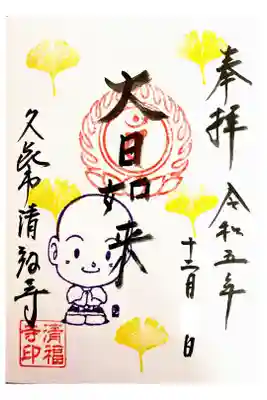 奉拝 令和五年
十二月 日
大日如来
久喜市清福寺
清福
寺印